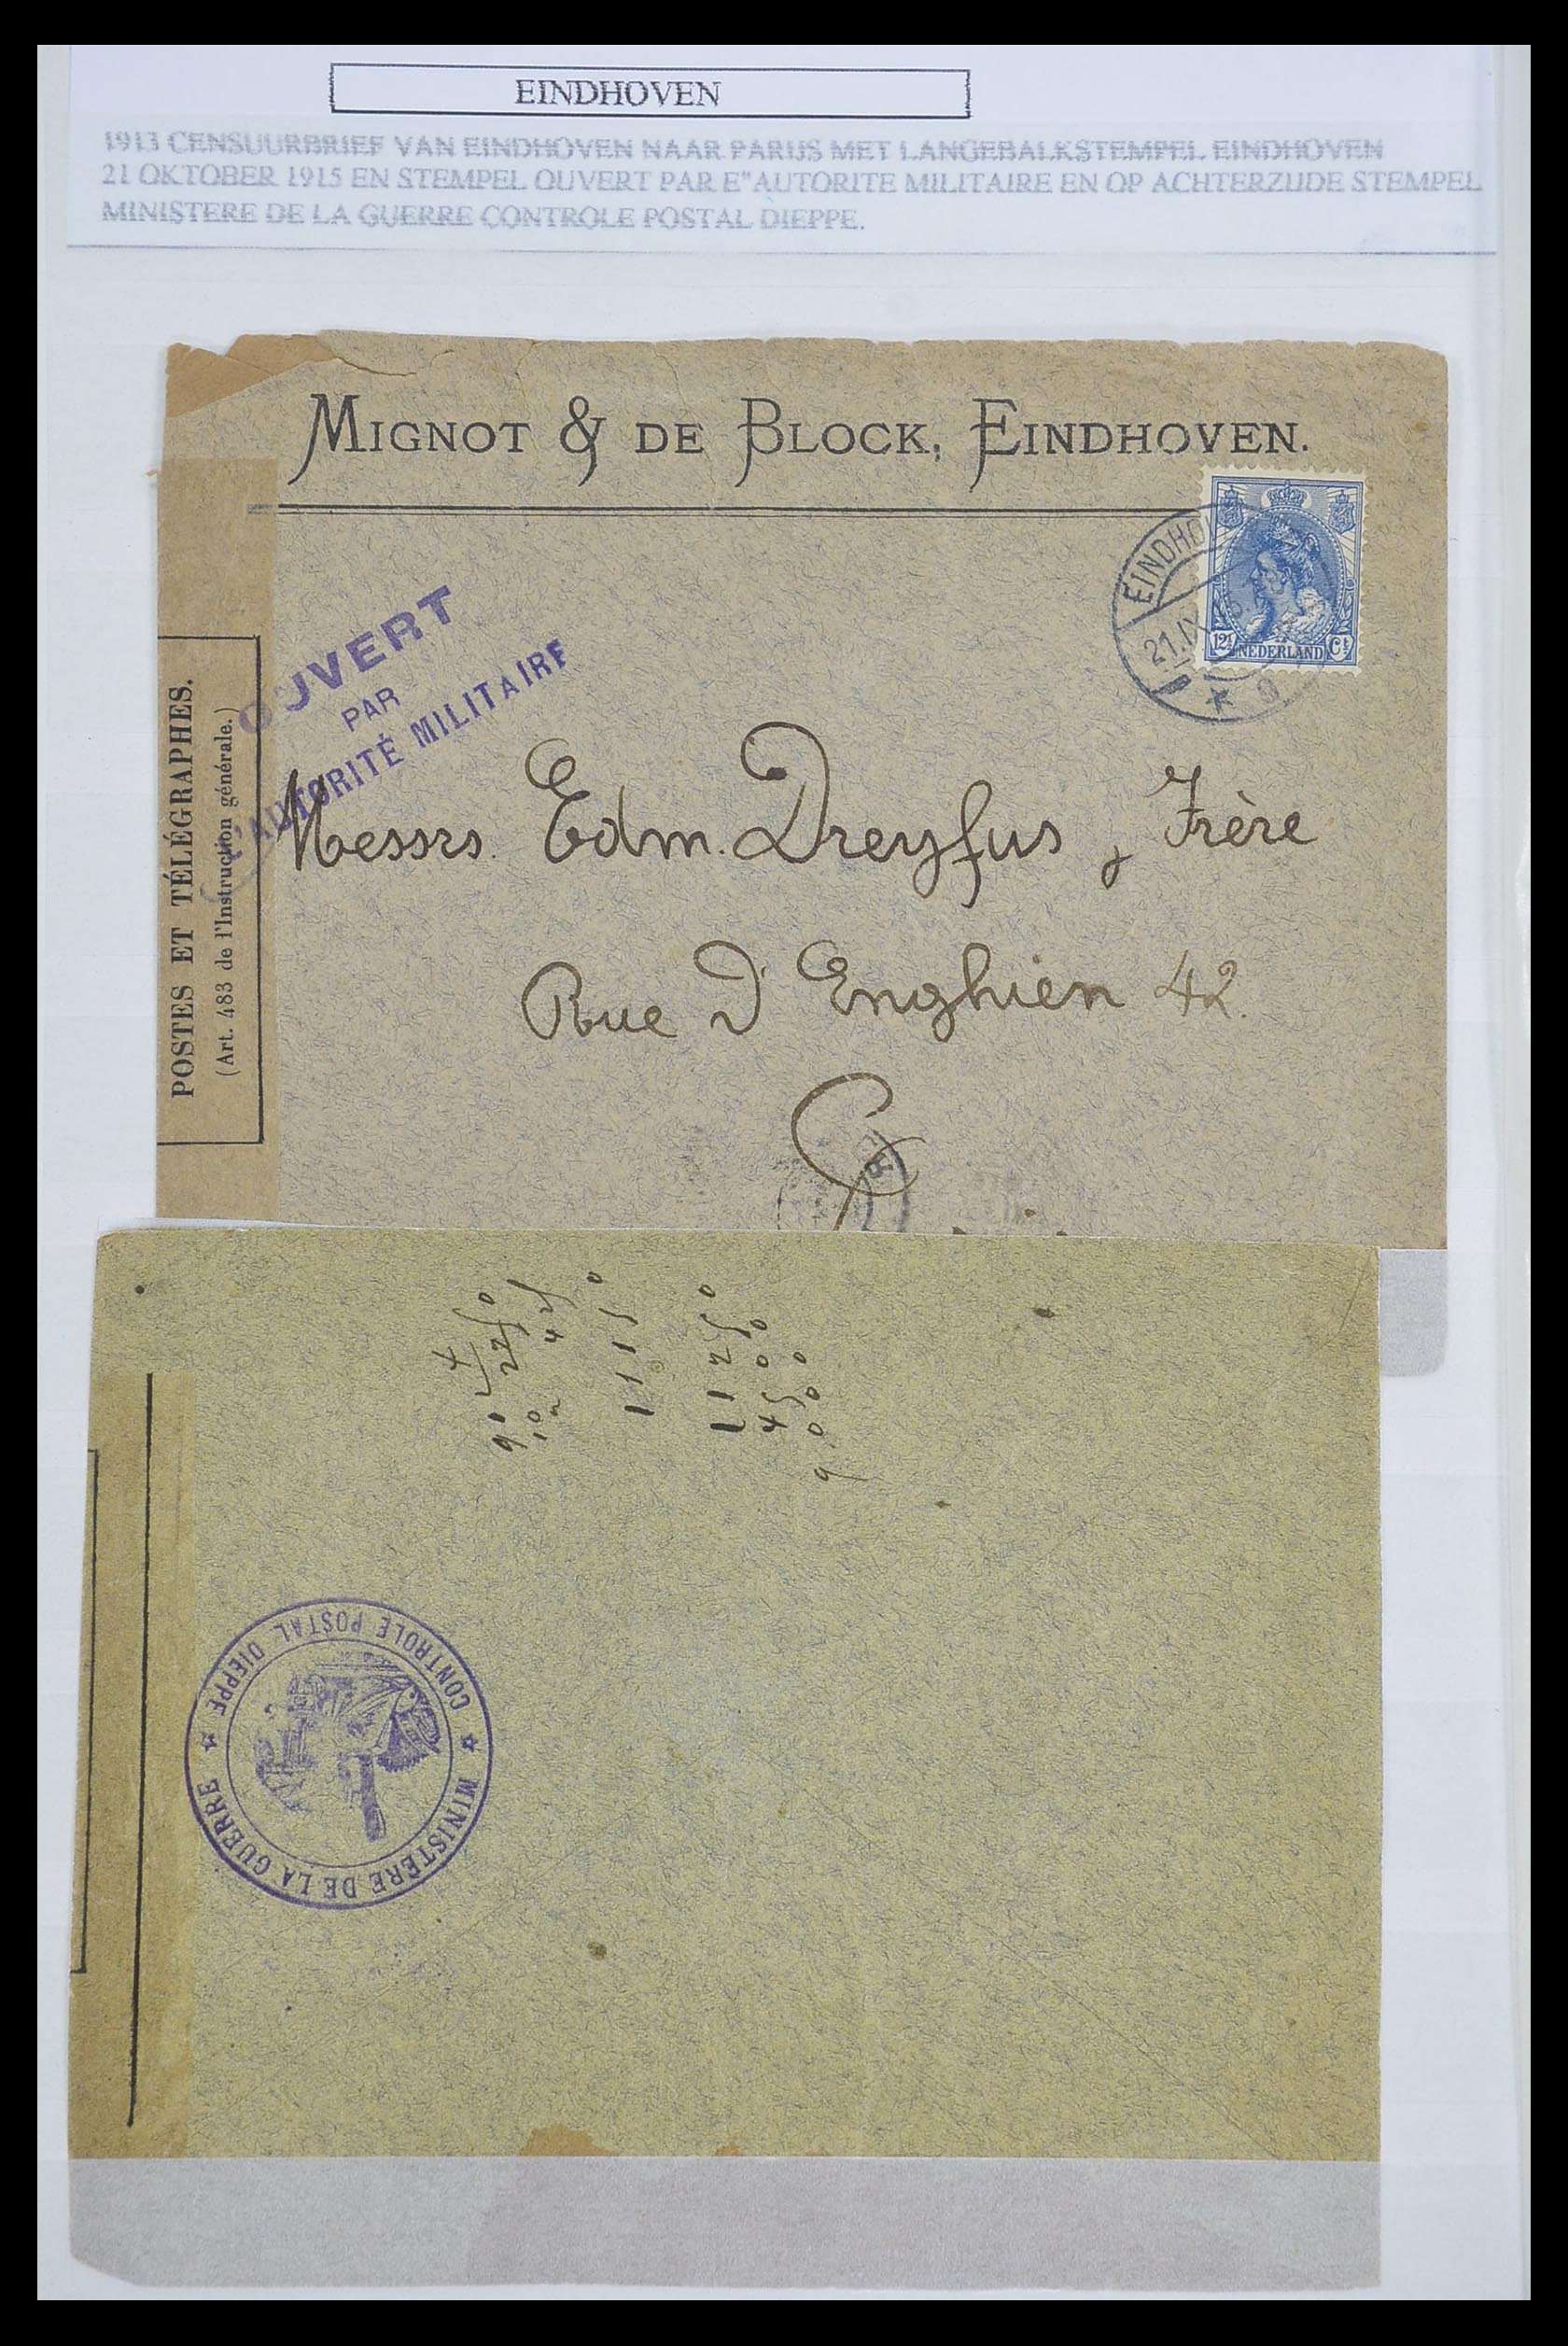 EINDHOVEN
1913 CENSUURBRIEF VAN EINDHOVEN NAAR PARIJS MET LANGEBALKSTEMPEL EINDHOVEN
21 OKTOBER 1915 EN STEMPEL OUVERT PAR E"AUTORITE MILITAIRE EN OP ACHTERZIJDE STEMPEL
MINISTERE DE LA GUERRE CONTROLE POSTAL DIEPPE.
MIGNOT & DE BLOCK, EINDHOVEN.
EINDHO
21.IX
12½ NEDERLAND Ct
OUVERT
PAR
L'AUTORITÉ MILITAIRE
POSTES ET TÉLÉGRAPHES.
(Art. 483 de l'Instruction générale.)
Messrs. Edm. Dreyfus & Frère
Rue D'Enghien 42.
CONTROLE POSTAL DIEPPE
MINISTERE DE LA GUERRE
11150
11250
4500
9000